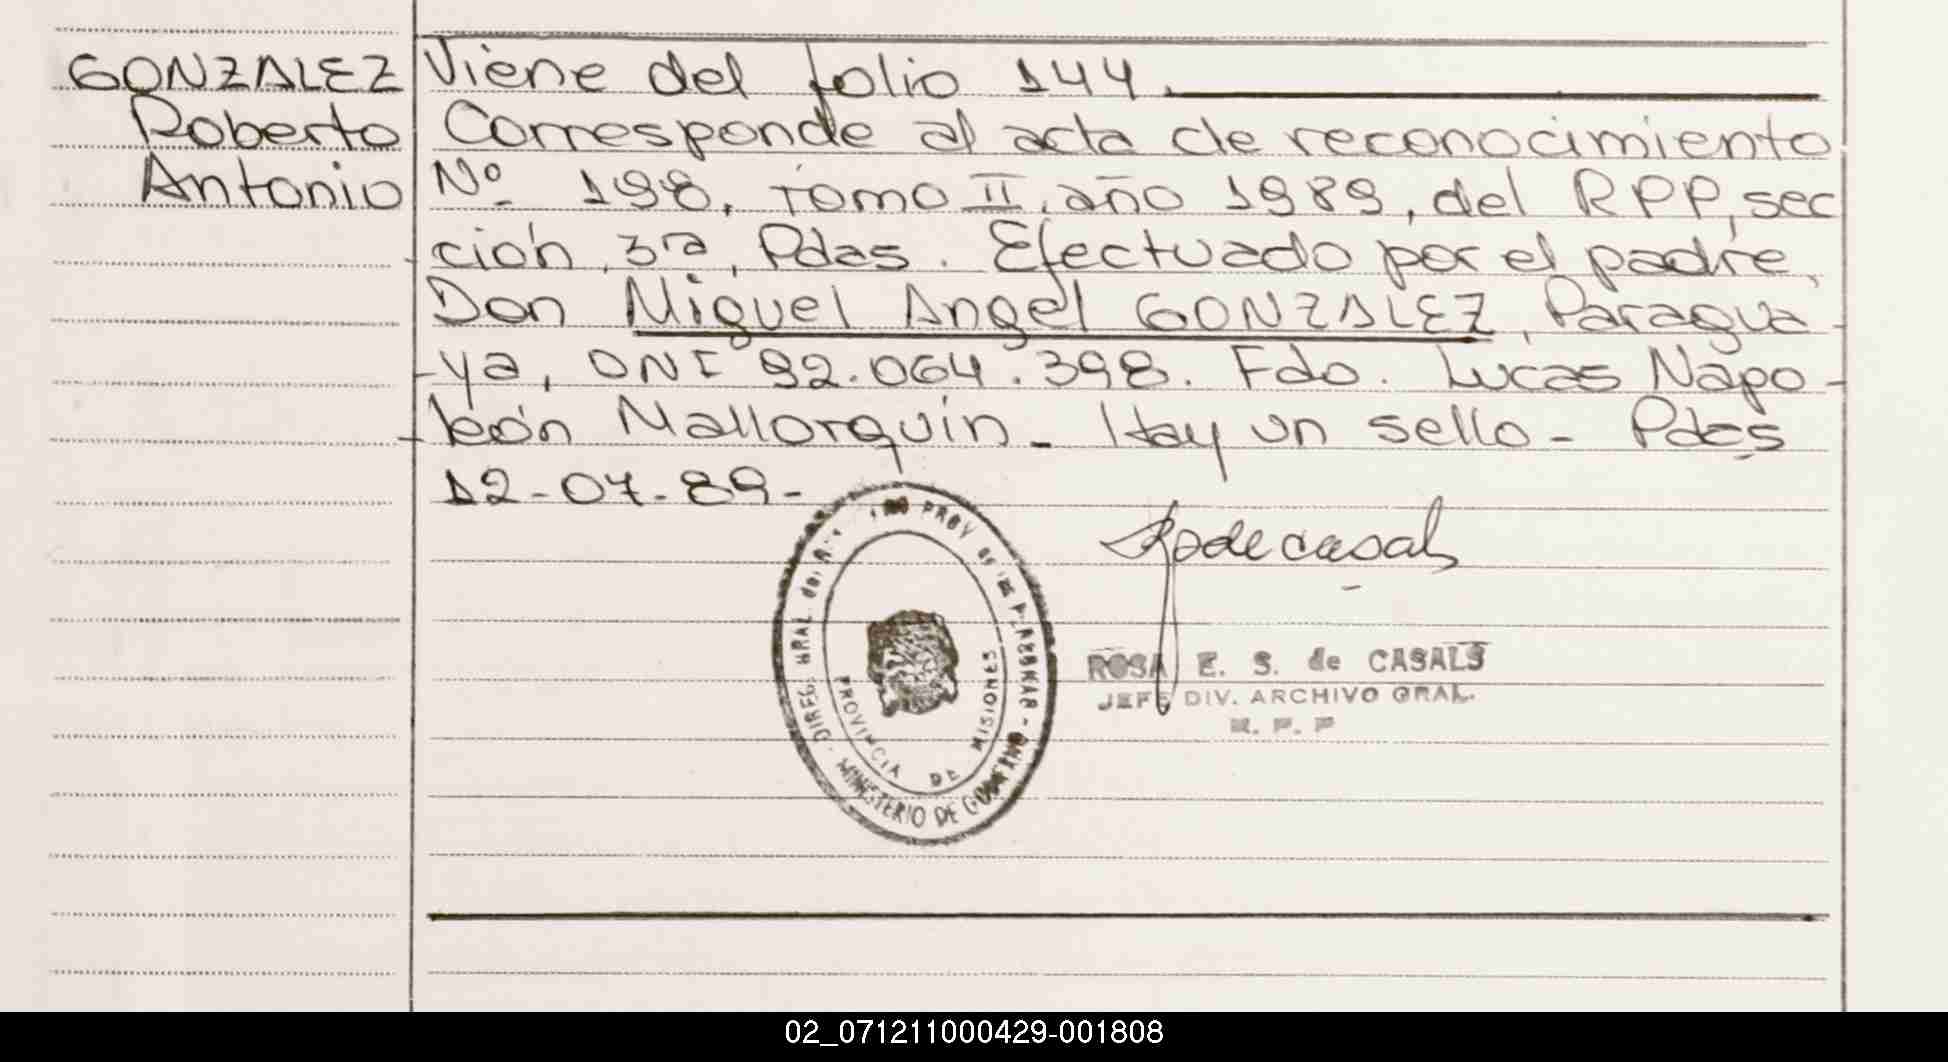 GONZALEZ
Roberto
Antonio
Viene del folio 144.
Corresponde al acta de reconocimiento
Nº 198, Tomo II, año 1989, del RPP, sec
ción, 3ra, Pdas. Efectuado por el padre,
Don Miguel Angel GONZALEZ, Paragua-
-ya, DNI 92.064.398. Fdo. Lucas Napo-
-león Mallorquín - Hay un sello - Pdas
12-07-89-
Rodecasals
ROSA E. S. de CASALS
JEFE DIV. ARCHIVO GRAL.
R. P. P
DIREG. GRAL. del PROV de las PERSONAS - MINISTERIO DE GOBIERNO
PROVINCIA DE MISIONES
02_071211000429-001808